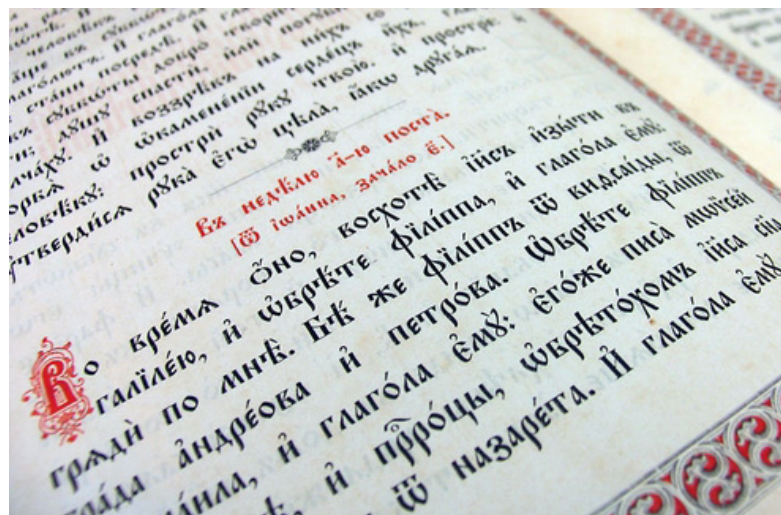 человѣкъ
глаголютъ. И҆ глагола
ста́ни посредѣ̀. И҆ глагола
въ сꙋббѡ́ты добро̀ твори́ти
дꙋ́шꙋ спастѝ, и҆лѝ погꙋби́ти
молча́хꙋ. И҆ воззрѣ́въ на ни́хъ со
ѡ҆ ѡ҆камене́нїи серде́цъ и҆́хъ, глаго́ла
человѣ́кꙋ: прострѝ рꙋ́кꙋ твою̀. И҆ прострѐ: и҆
ᲂу҆тверди́сѧ рꙋка̀ є҆гѡ̀ цѣла̀, ꙗ҆́кѡ дрꙋга́ѧ.
Въ недѣ́лю а҃-ю поста̀.
[Ѿ і҆ѡа́нна, зача́ло є҃.]
Во вре́мѧ ѻ҆́но, восхотѣ̀ і҆и҃съ и҆зы́ти въ
галїле́ю, и҆ ѡ҆брѣ́те фїлі́ппа, и҆ глаго́ла є҆мꙋ̀:
грѧдѝ по мнѣ̀. Бѣ́ же фїлі́ппъ ѿ виѳсаі́ды, ѿ
гра́да а҆ндре́ова и҆ петро́ва. Ѡ҆брѣ́те фїлі́ппъ
наѳана́ила, и҆ глаго́ла є҆мꙋ̀: є҆го́же писа̀ мѡѷсе́й
и҆ прⷪ҇ро́цы, ѡ҆брѣто́хомъ і҆и҃са сн҃а
ѿ назаре́та. И҆ глаго́ла є҆мꙋ̀